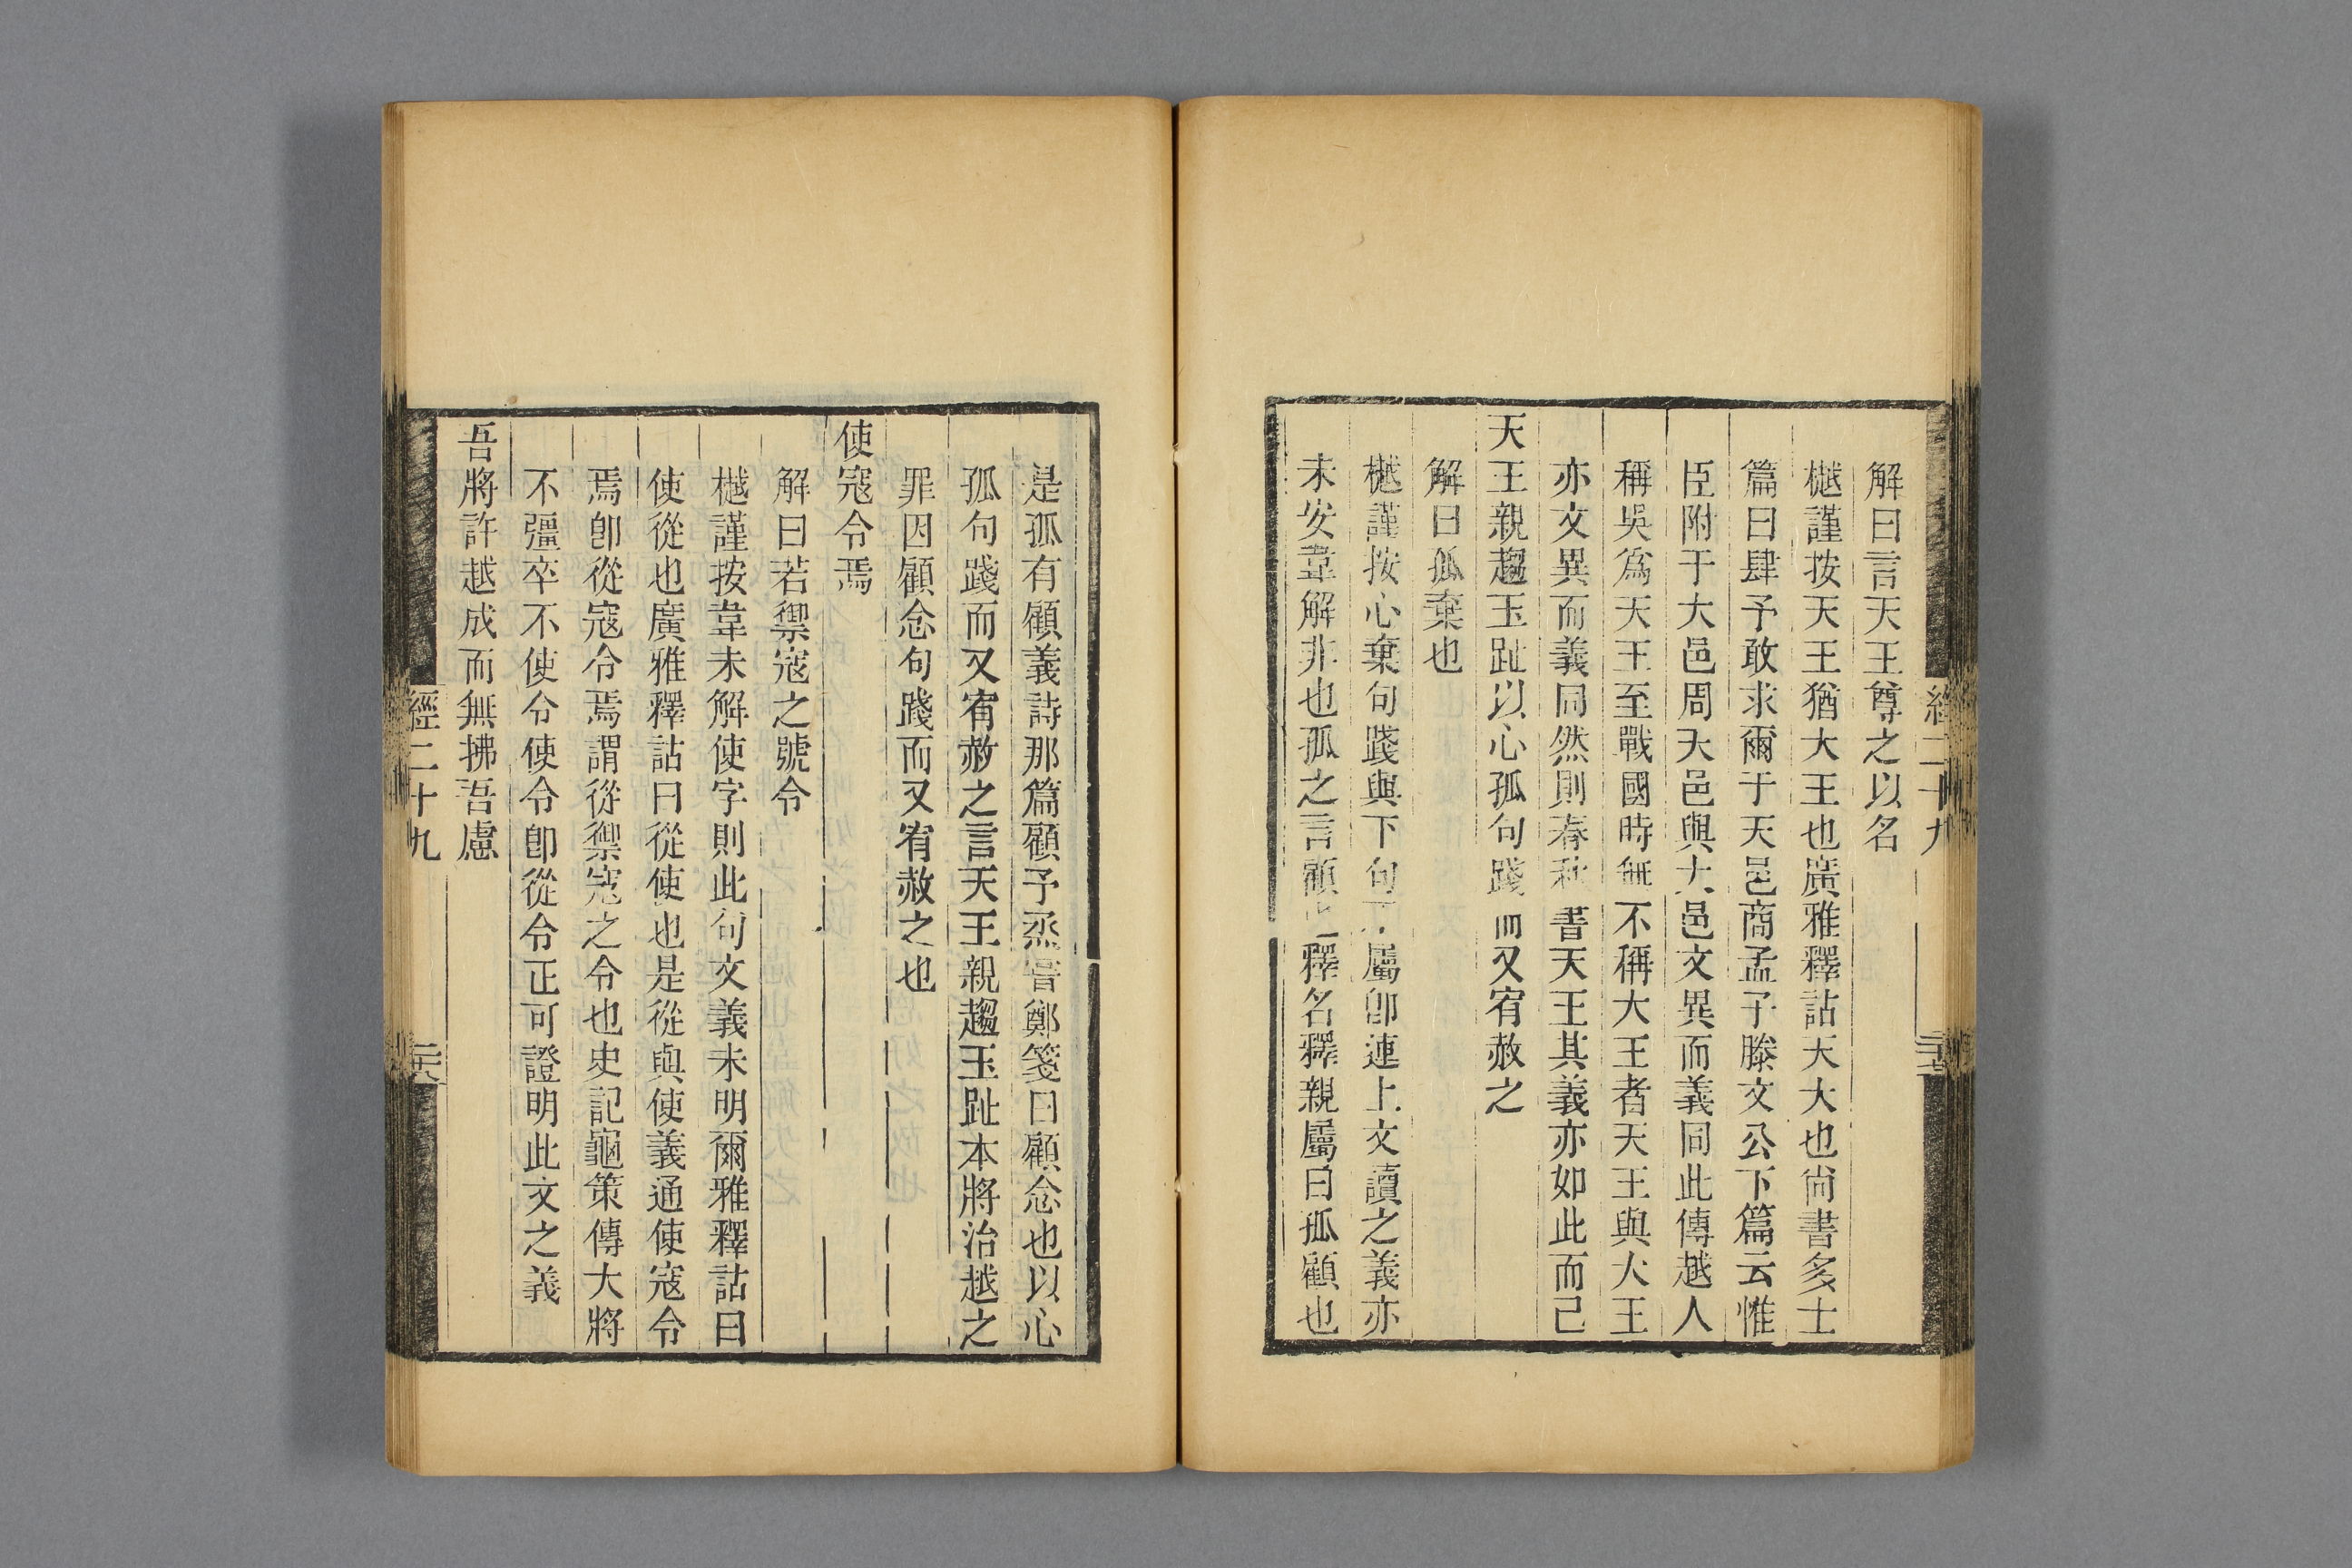 解曰言天王尊之以名
樾謹按天王猶大王也廣雅釋詁天大也尙書多士
篇曰肆予敢求爾于天邑商孟子滕文公下篇云惟
臣附于大邑周天邑與大邑文異而義同此傳越人
稱吳爲天王至戰國時無不稱大王者天王與大王
亦文異而義同然則春秋書天王其義亦如此而已
天王親趨玉趾以心孤句踐而又宥赦之
解曰孤棄也
樾謹按心棄句踐與下句不屬卽連上文讀之義亦
未安韋解非也孤之言顧也釋名釋親屬曰孤顧也
經二十九
是孤有顧義詩那篇顧予烝嘗鄭箋曰顧念也以心
孤句踐而又宥赦之言天王親趨玉趾本將治越之
罪因顧念句踐而又宥赦之也
使寇令焉
解曰若禦寇之號令
樾謹按韋未解使字則此句文義未明爾雅釋詁曰
使從也廣雅釋詁曰從使也是從與使義通使寇令
焉卽從寇令焉謂從禦寇之令也史記龜策傳大將
不彊卒不使令使令卽從令正可證明此文之義
吾將許越成而無拂吾慮
經二十九
二六